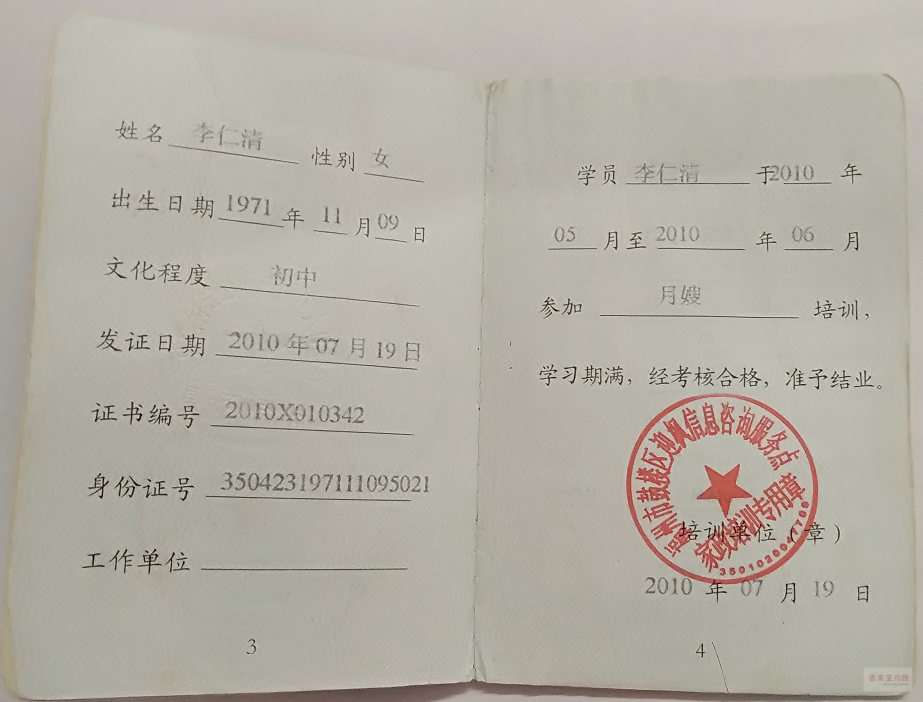 姓名 李仁清 性别 女
出生日期 1971 年 11 月 09 日
文化程度 初中
发证日期 2010 年 07 月 19 日
证书编号 2010X010342
身份证号 350423197111095021
工作单位
3
学员 李仁清 于2010 年
05 月至 2010 年 06 月
参加 月嫂 培训，
学习期满，经考核合格，准予结业。
福州市鼓楼区迎枫信息咨询服务点
家政培训专用章
培训单位（章）
2010 年 07 月 19 日
4